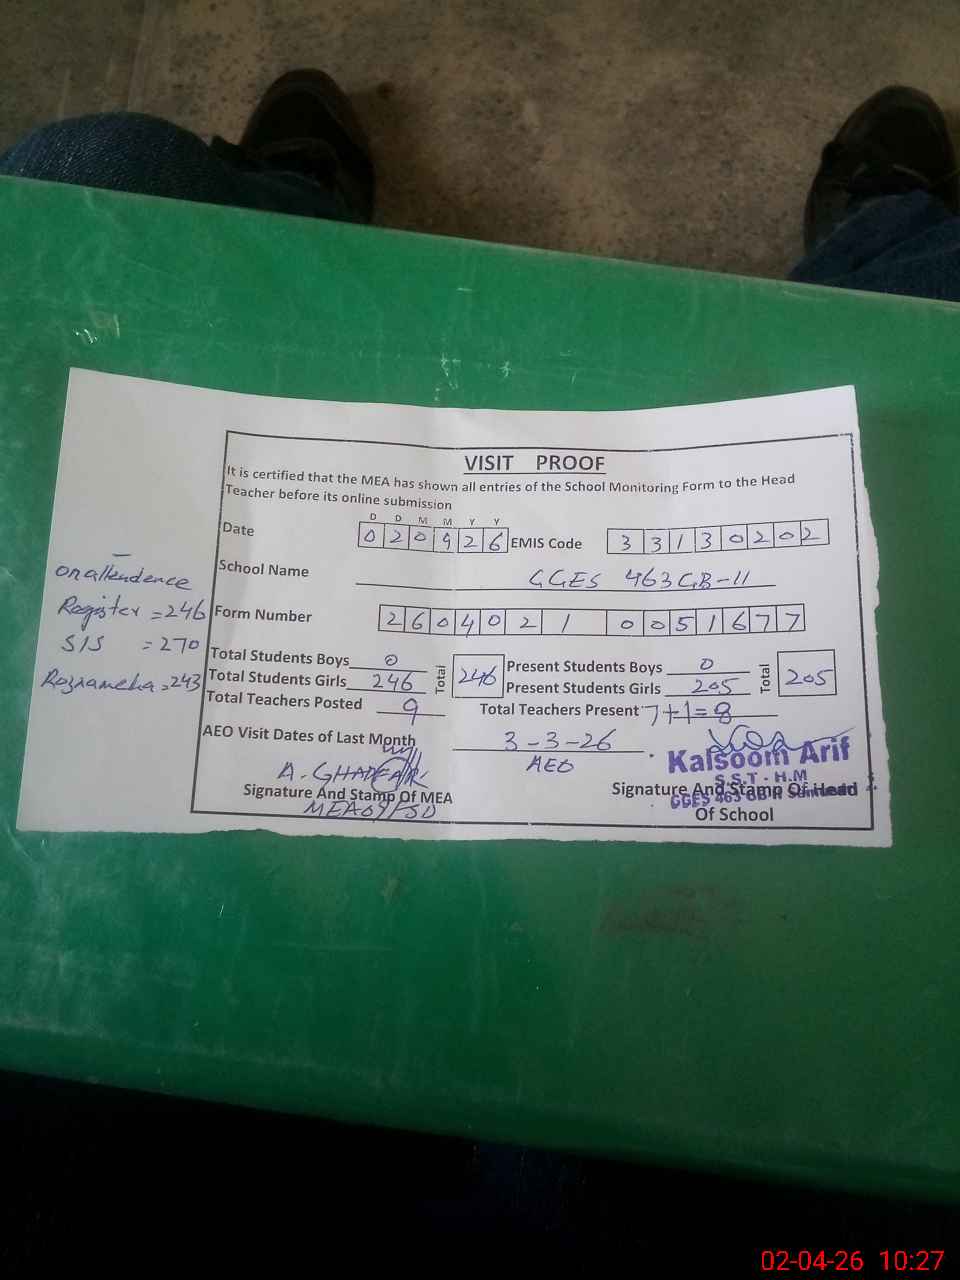 VISIT PROOF
It is certified that the MEA has shown all entries of the School Monitoring Form to the Head
Teacher before its online submission
D D M M Y Y
Date 0 2 0 4 2 6 EMIS Code 3 3 1 3 0 2 0 2
School Name GGES 463 GB-II
Form Number 2 6 0 4 0 2 1 0 0 5 1 6 7 7
Total Students Boys 0 Total 246 Present Students Boys 0 Total 205
Total Students Girls 246 Present Students Girls 205
Total Teachers Posted 9 Total Teachers Present 7+1=8
AEO Visit Dates of Last Month 3-3-26
AEO
A. GHAFFAR
Signature And Stamp Of MEA
Kalsoom Arif
S.S.T - H.M
GGES 463 GB
Signature And Stamp Of Head
Of School
on attendence
Register = 246
SIS = 270
Roznamcha = 243
02-04-26 10:27